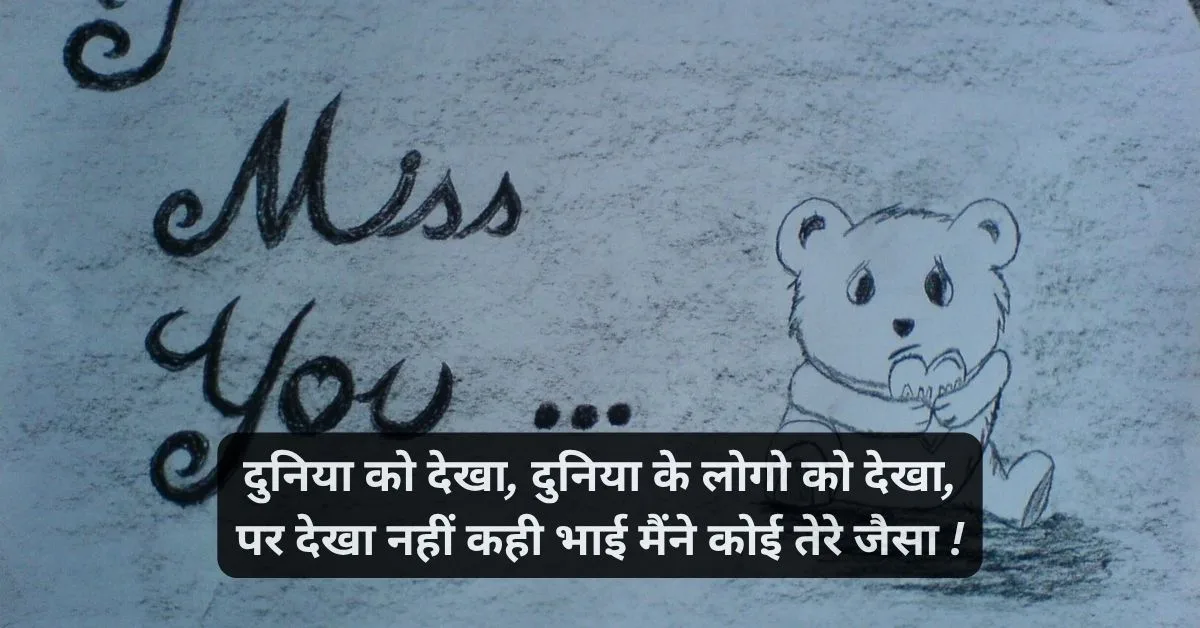 Miss
You ...
दुनिया को देखा, दुनिया के लोगो को देखा,
पर देखा नहीं कही भाई मैंने कोई तेरे जैसा !